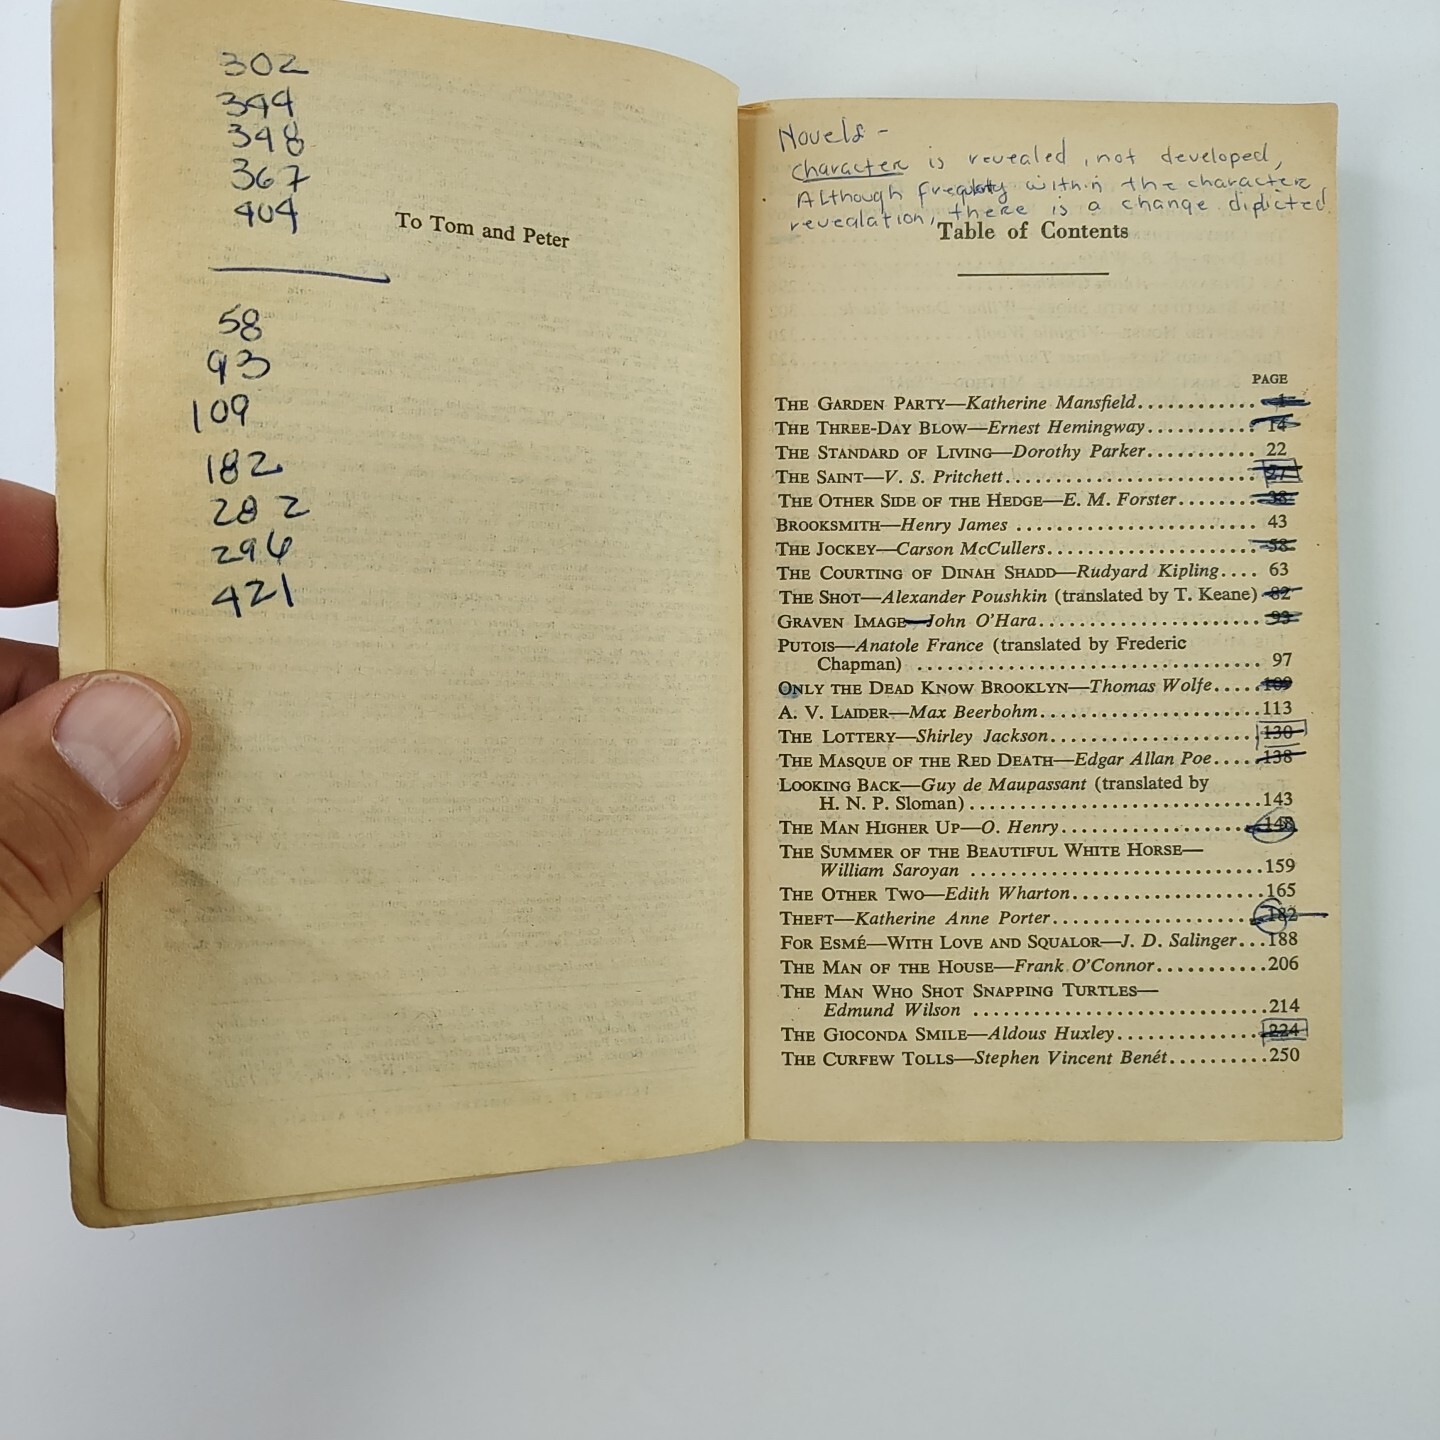 302
344
348
367
404
To Tom and Peter
58
93
109
182
282
296
421
Novels -
character is revealed, not developed,
Although frequently within the character
revealation, there is a change dipicted.
Table of Contents
PAGE
THE GARDEN PARTY—Katherine Mansfield............ 1
THE THREE-DAY BLOW—Ernest Hemingway........... 14
THE STANDARD OF LIVING—Dorothy Parker........... 22
THE SAINT—V. S. Pritchett......................... 27
THE OTHER SIDE OF THE HEDGE—E. M. Forster........ 38
BROOKSMITH—Henry James ........................ 43
THE JOCKEY—Carson McCullers..................... 58
THE COURTING OF DINAH SHADD—Rudyard Kipling.... 63
THE SHOT—Alexander Poushkin (translated by T. Keane) 82
GRAVEN IMAGE—John O'Hara...................... 93
PUTOIS—Anatole France (translated by Frederic
Chapman) .................................. 97
ONLY THE DEAD KNOW BROOKLYN—Thomas Wolfe.....109
A. V. LAIDER—Max Beerbohm......................113
THE LOTTERY—Shirley Jackson.....................130
THE MASQUE OF THE RED DEATH—Edgar Allan Poe.....138
LOOKING BACK—Guy de Maupassant (translated by
H. N. P. Sloman).............................143
THE MAN HIGHER UP—O. Henry....................148
THE SUMMER OF THE BEAUTIFUL WHITE HORSE—
William Saroyan .............................159
THE OTHER TWO—Edith Wharton...................165
THEFT—Katherine Anne Porter.....................182
FOR ESMÉ—WITH LOVE AND SQUALOR—J. D. Salinger...188
THE MAN OF THE HOUSE—Frank O'Connor...........206
THE MAN WHO SHOT SNAPPING TURTLES—
Edmund Wilson .............................214
THE GIOCONDA SMILE—Aldous Huxley...............224
THE CURFEW TOLLS—Stephen Vincent Benét..........250